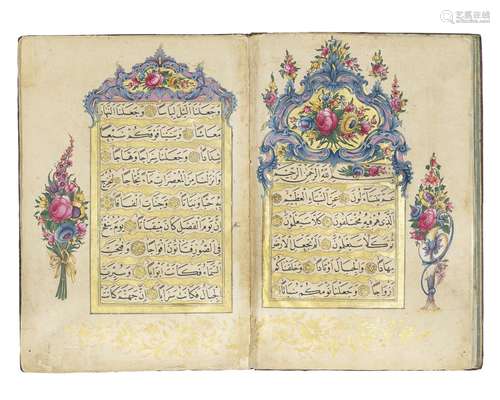 艺狐在线
بسم الله الرحمن الرحيم
عم يتساءلون عن النبإ العظيم
الذي هم فيه مختلفون كلا سيعلمون
ثم كلا سيعلمون ألم نجعل الأرض
مهادا والجبال أوتادا وخلقناكم
أزواجا وجعلنا نومكم سباتا
وجعلنا الليل لباسا وجعلنا النهار
معاشا وبنينا فوقكم سبعا
شدادا وجعلنا سراجا وهاجا
وأنزلنا من المعصرات ماء ثجاجا لنخرج
به حبا ونباتا وجنات ألفافا
إن يوم الفصل كان ميقاتا يوم ينفخ
في الصور فتأتون أفواجا وفتحت
السماء فكانت أبوابا وسيرت
الجبال فكانت سرابا إن جهنم كانت